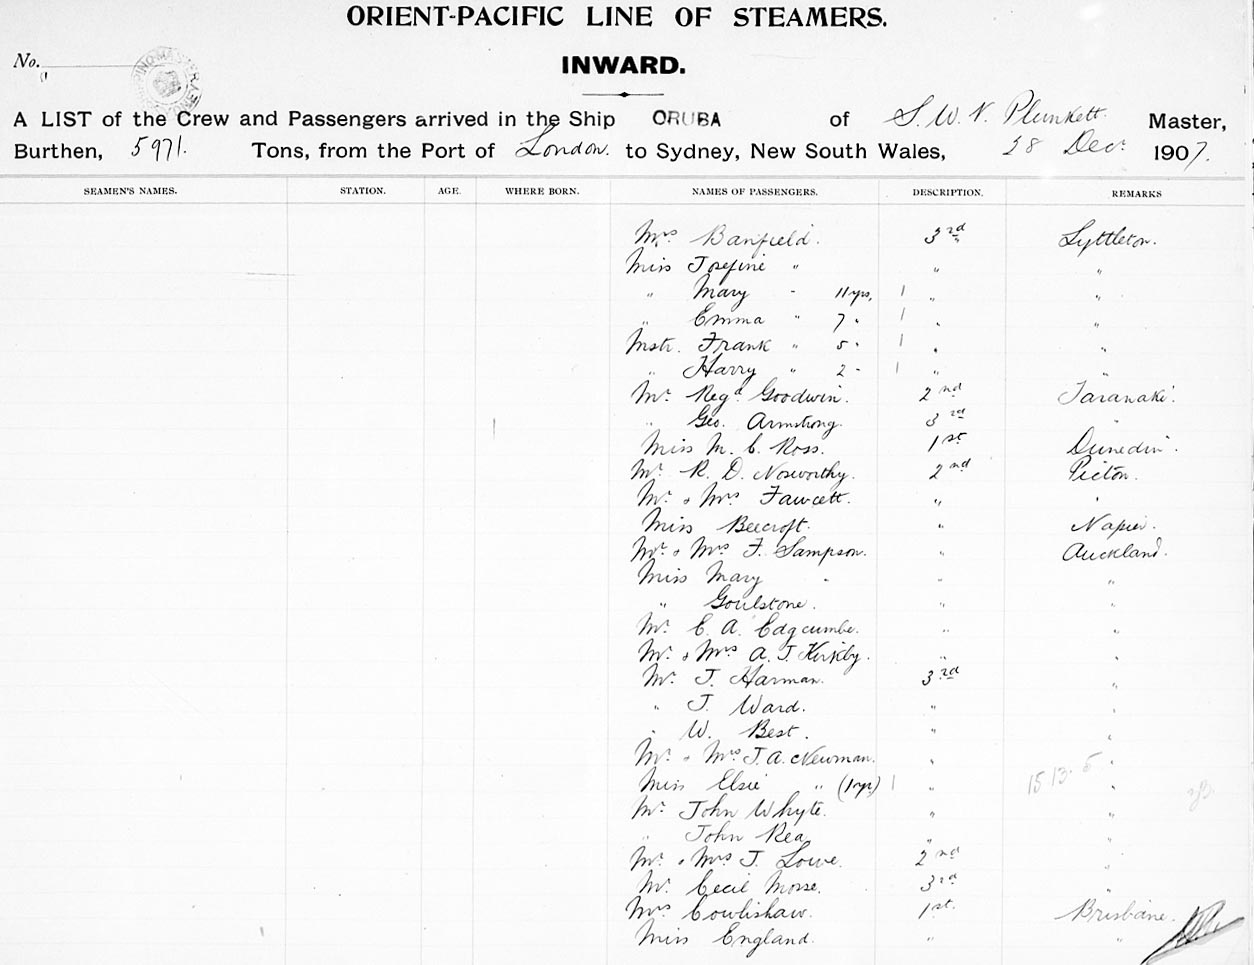 ORIENT-PACIFIC LINE OF STEAMERS.
No.
INWARD.
A LIST of the Crew and Passengers arrived in the Ship ORUBA of S. W. V. Plunkett. Master,
Burthen, 5971. Tons, from the Port of London. to Sydney, New South Wales, 28 Decr. 1907.
SEAMEN'S NAMES. STATION. AGE. WHERE BORN. NAMES OF PASSENGERS. DESCRIPTION. REMARKS
Mrs Banfield. 3rd Lyttleton.
Miss Josefine " " "
" Mary " 11 yrs, 1 " "
" Emma " 7 " 1 " "
Mstr. Frank " 5 " 1 " "
" Harry " 2 " 1 " "
Mr. Regd. Goodwin. 2nd Taranaki.
" Geo. Armstrong. 3rd "
Miss M. C. Ross. 1st Dunedin.
Mr. R. D. Nosworthy. 2nd Picton.
Mr. & Mrs Fawcett. " "
Miss Beecroft. " Napier.
Mr. & Mrs F. Sampson. " Auckland.
Miss Mary " " "
" Goulstone. " "
Mr. E. A. Edgcumbe. " "
Mr. & Mrs A. J. Kirkby. " "
Mr. J. Harman. 3rd "
" J. Ward. " "
" W. Best. " "
Mr. & Mrs J. A. Newman. " "
Miss Elsie " (1 yr) 1 " "
15.13.5
Mr. John Whyte. " "
" John Rea " "
Mr. & Mrs J. Lowe. 2nd "
Mr. Cecil Morse. 3rd "
Mrs Cowlishaw. 1st. Brisbane.
Miss England. " "